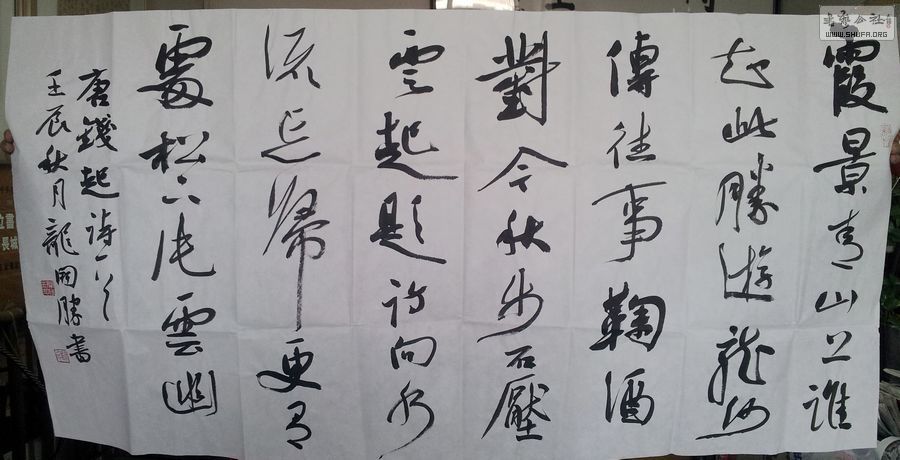 霞景青山上誰
知此勝遊龍沙
傳往事鞠酒
對今秋步石壓
雲起題詩向水
流忘歸更有
處松下片雲幽
唐錢起詩一首
壬辰秋月龍國勝書
书艺公社
WWW.SHUFA.ORG
立書
長城